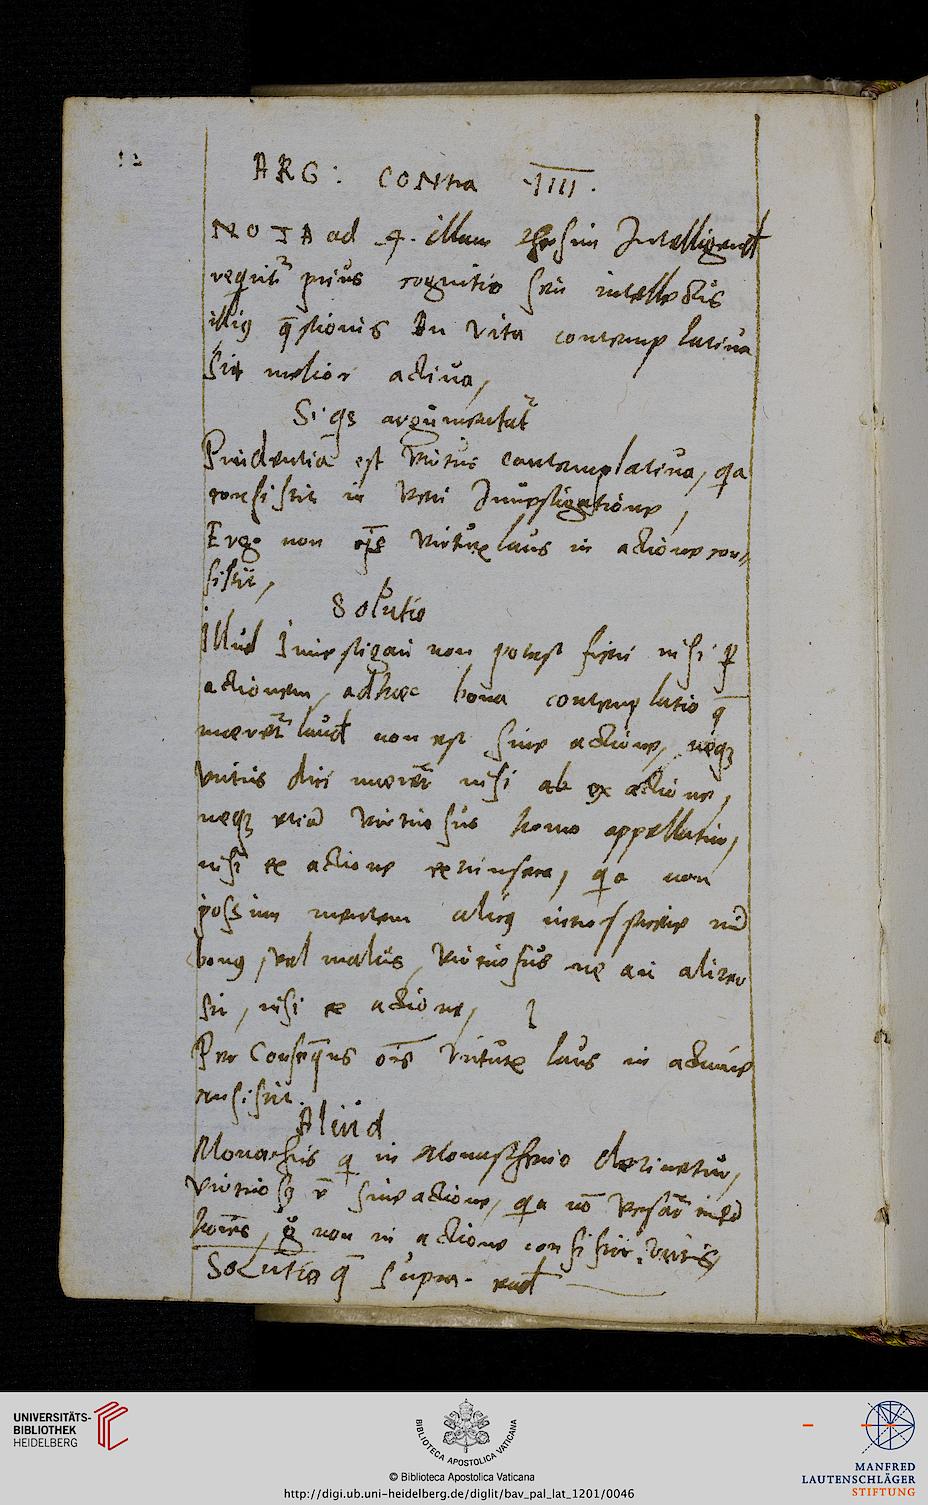 12
ARG: CONtra IIII.
NOTA ad 4. illam thesim Intelligend
reqrit prius cognitio seu intellectus
illiq qstionis An vita contemplatiua
sit melior actiua,
Si qs argumentat
Prudentia est virtus contemplatiua, qa
consistit in veri Inuestigatione,
Ergo non ois virtutx laus in actione con=
sistit,
Solutio
Illud Inuestigari non potest fieri nisi p
actionem, adhaec bona contemplatio q
meret laud non est sine actione, neqz
virtus dici meret nisi ex actione,
neqz etia virtuosus homo appellatur,
nisi ex actione extrinseca, qa non
possum mentem alicq introspicere nu
bonq, vel malus, virtuosus ne an aliter
sit, nisi ex actione,
Per Conseqns ois virtutx laus in actione
consistit.
Aliud
Monachus q in Monasterio detinetur,
virtuosq e sine actione, qa no versat inter
hoies, g non in actione consistit virtus
Solutio q supra.
UNIVERSITÄTS-
BIBLIOTHEK
HEIDELBERG
BIBLIOTECA APOSTOLICA VATICANA
© Biblioteca Apostolica Vaticana
http://digi.ub.uni-heidelberg.de/diglit/bav_pal_lat_1201/0046
MANFRED
LAUTENSCHLÄGER
STIFTUNG